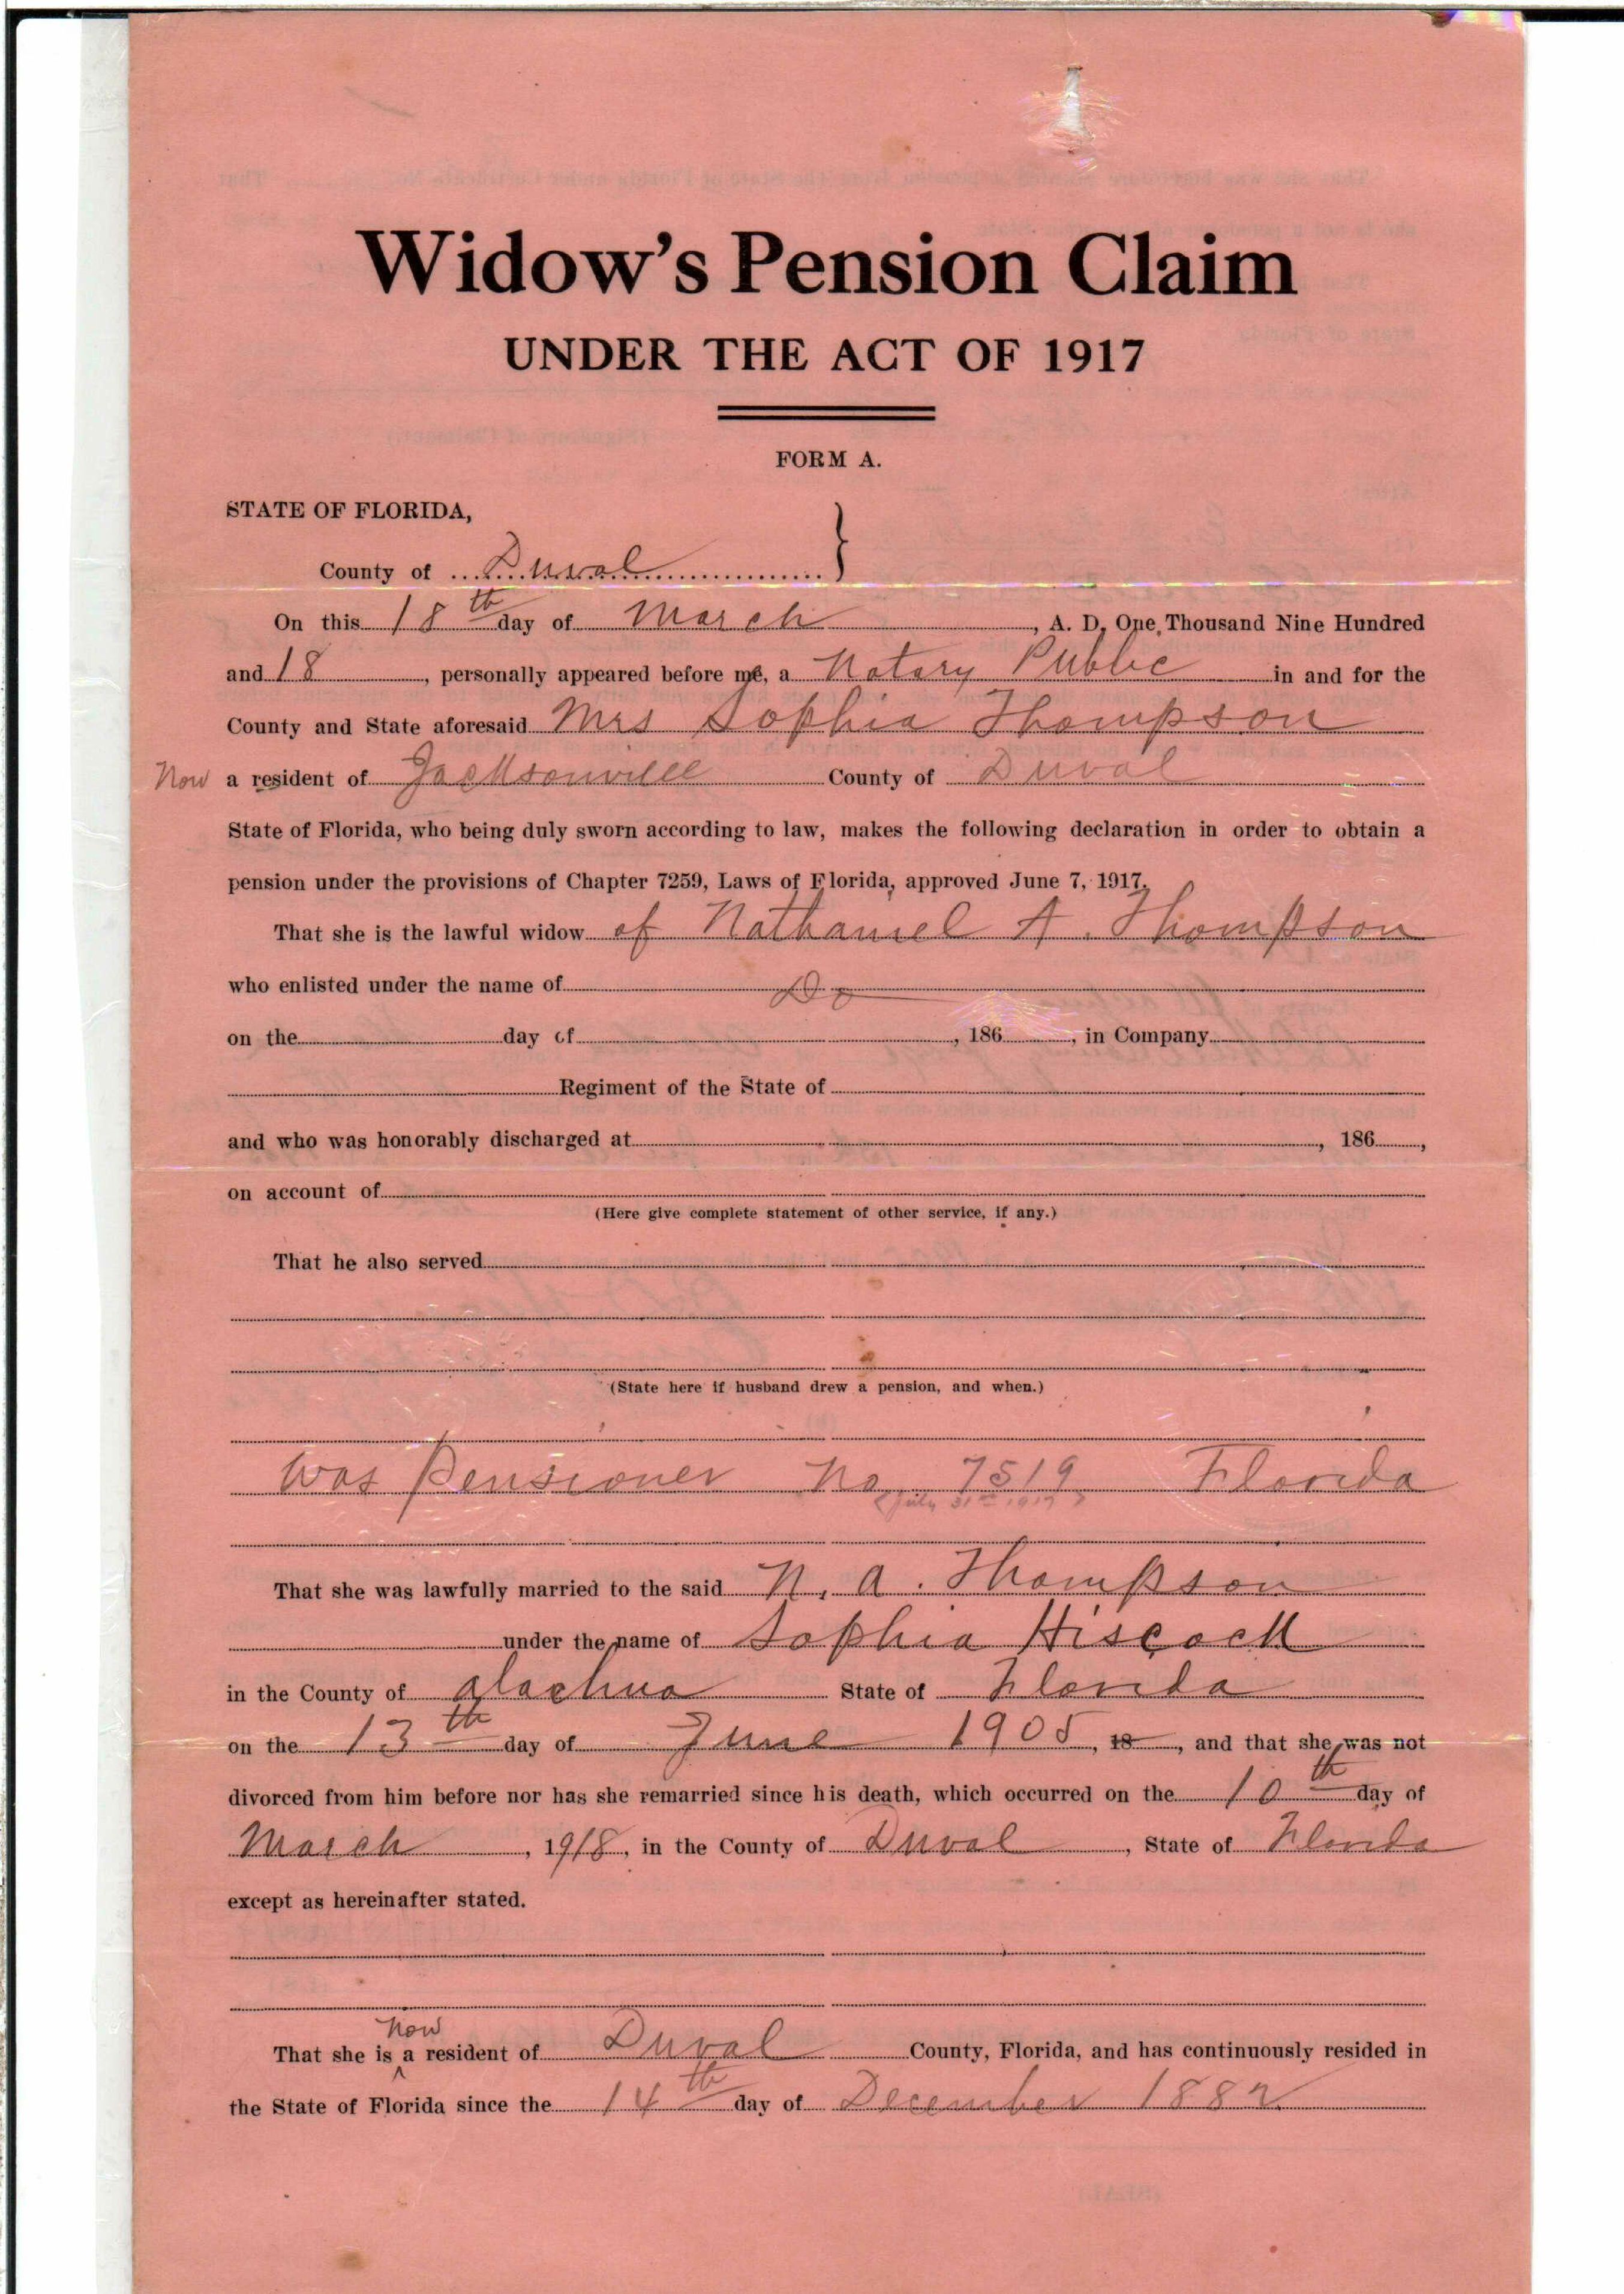 Widow's Pension Claim
UNDER THE ACT OF 1917
FORM A.
STATE OF FLORIDA,
County of Duval
On this 18th day of March, A. D. One Thousand Nine Hundred
and 18, personally appeared before me, a Notary Public in and for the
County and State aforesaid Mrs Sophia Thompson
Now a resident of Jacksonville County of Duval
State of Florida, who being duly sworn according to law, makes the following declaration in order to obtain a
pension under the provisions of Chapter 7259, Laws of Florida, approved June 7, 1917.
That she is the lawful widow of Nathaniel A. Thompson
who enlisted under the name of Do
on the day of , 186 , in Company
Regiment of the State of
and who was honorably discharged at , 186 ,
on account of
(Here give complete statement of other service, if any.)
That he also served
(State here if husband drew a pension, and when.)
Was Pensioner No 7519 Florida
(July 31st 1917)
That she was lawfully married to the said N. A. Thompson
under the name of Sophia Hiscock
in the County of Alachua State of Florida
on the 13th day of June 1905, 18 , and that she was not
divorced from him before nor has she remarried since his death, which occurred on the 10th day of
March, 1918, in the County of Duval, State of Florida
except as hereinafter stated.
now
That she is a resident of Duval County, Florida, and has continuously resided in
the State of Florida since the 14th day of December 1882